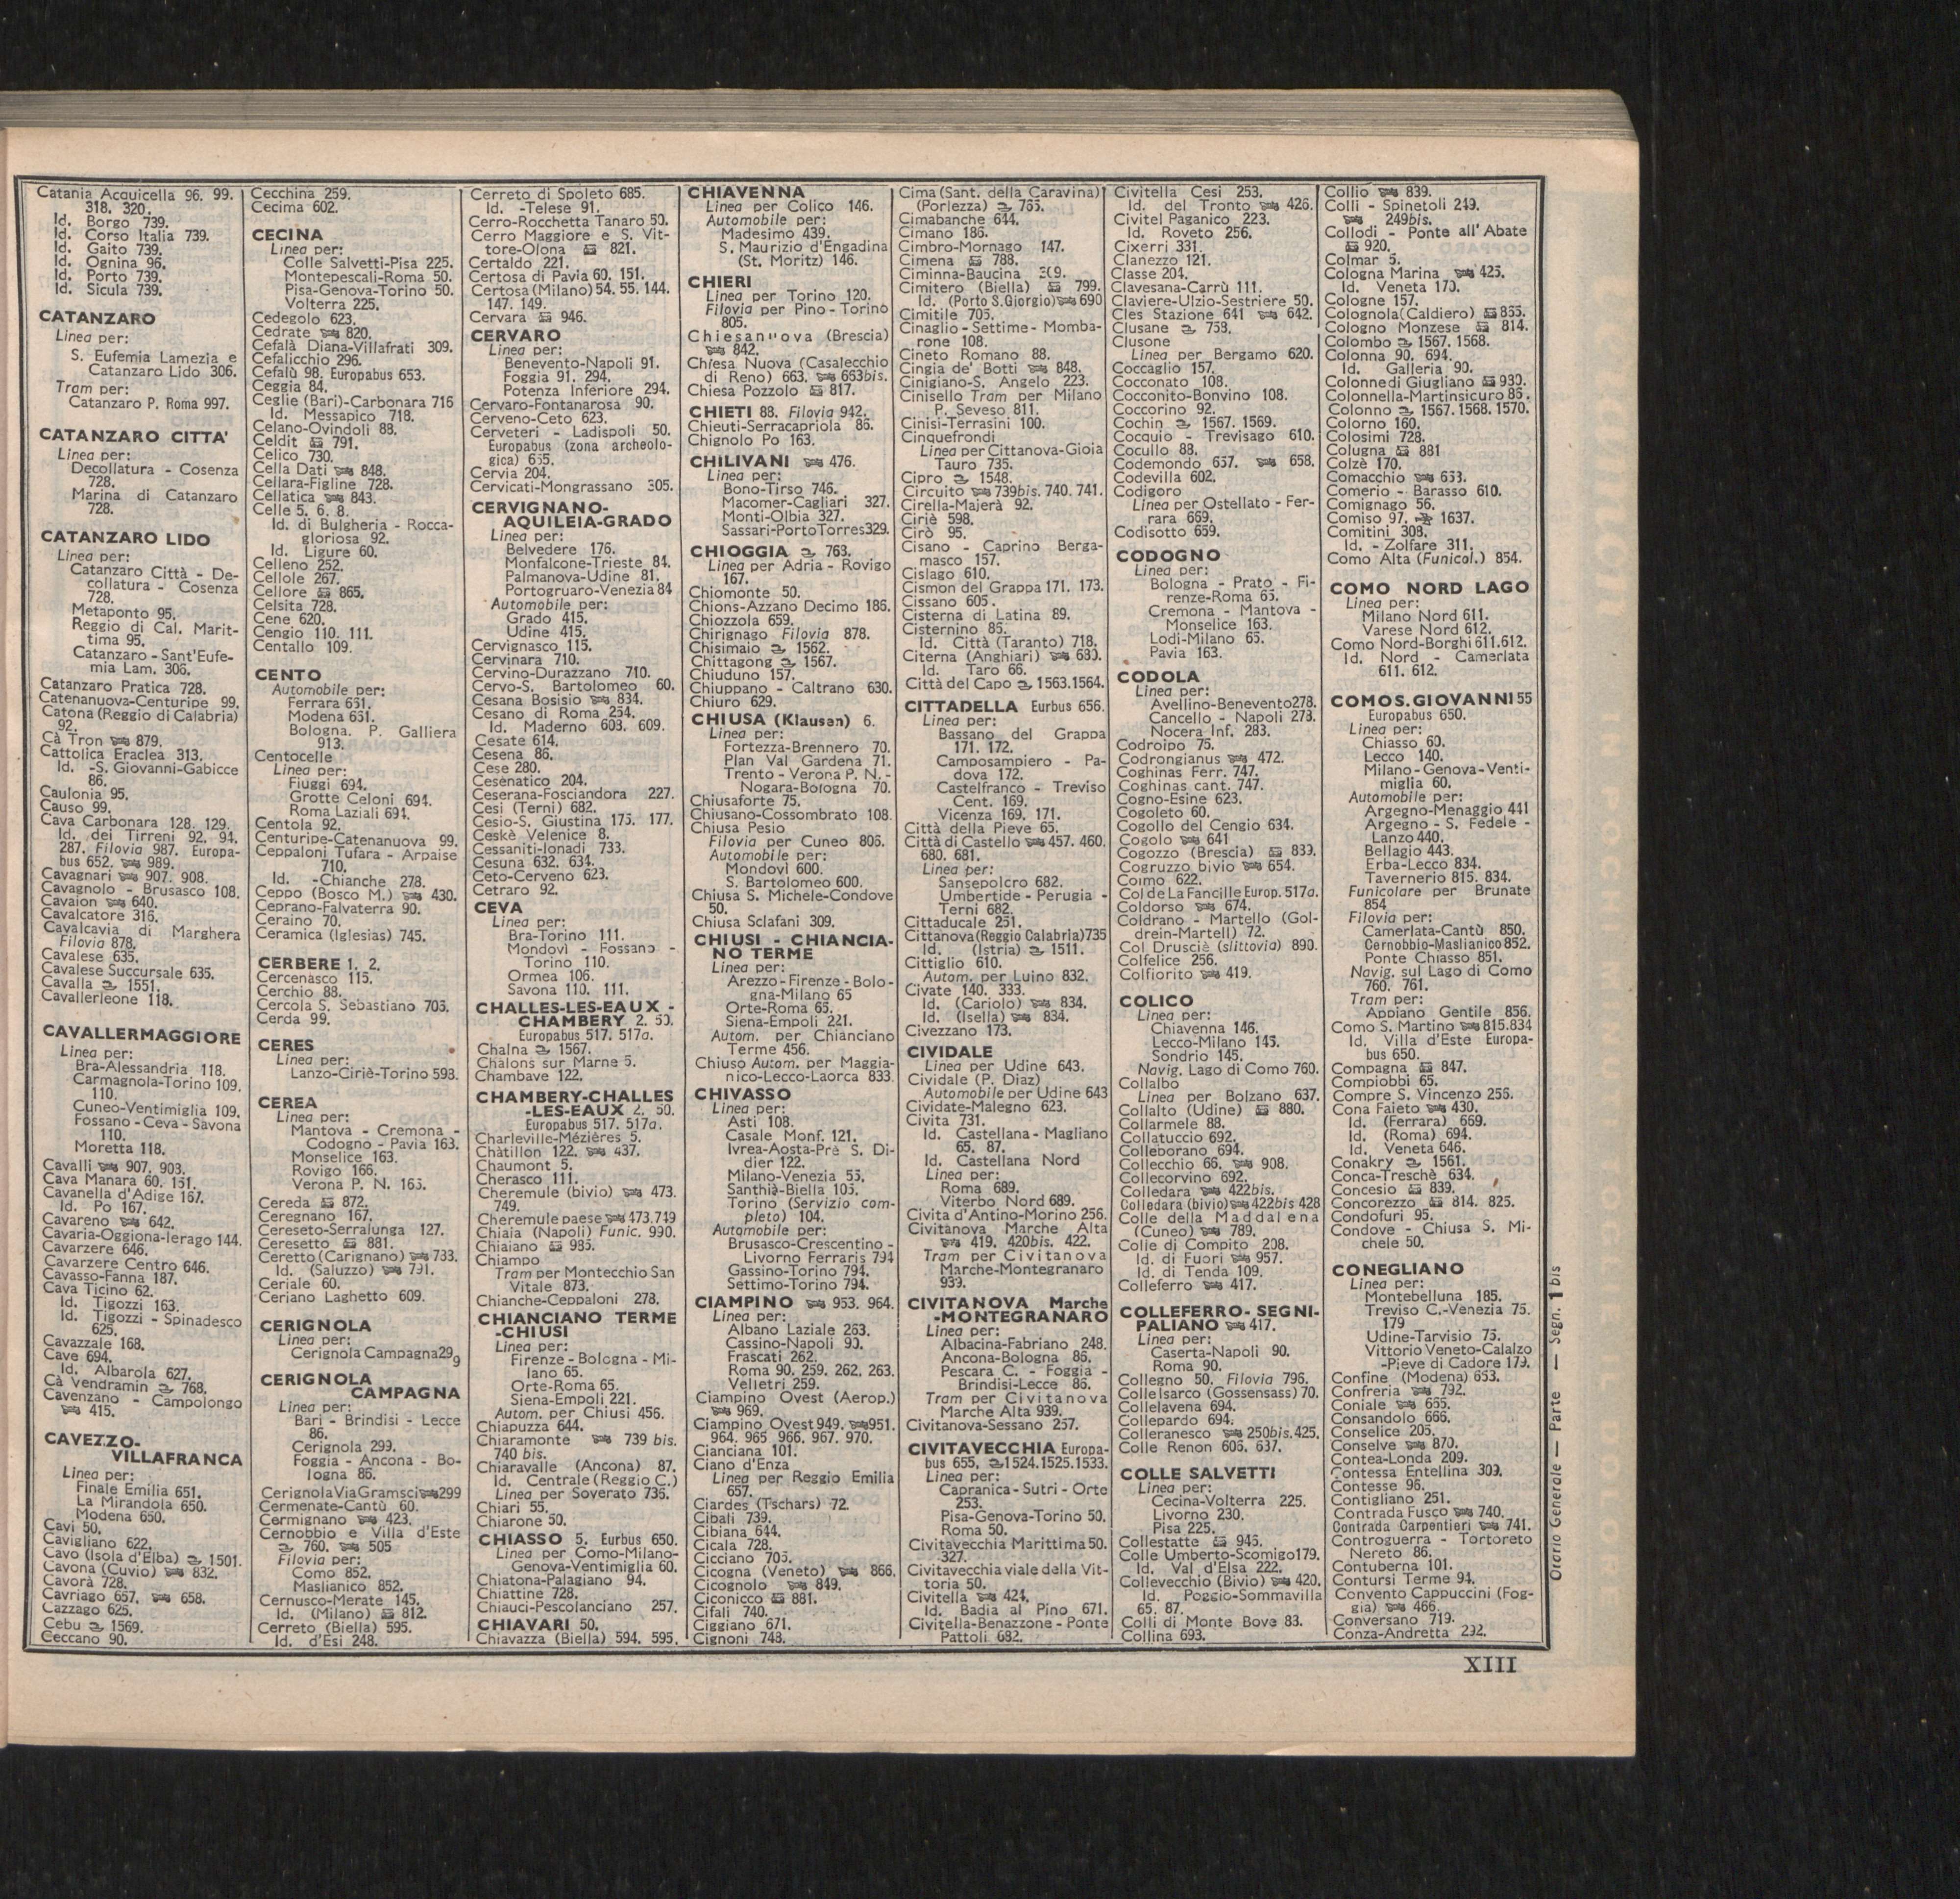 Catania Acquicella 96. 99.
318. 320.
Id. Borgo 739.
Id. Corso Italia 739.
Id. Gaito 739.
Id. Ognina 96.
Id. Porto 739.
Id. Sicula 739.
CATANZARO
Linea per:
S. Eufemia Lamezia e
Catanzaro Lido 306.
Tram per:
Catanzaro P. Roma 997.
CATANZARO CITTA'
Linea per:
Decollatura - Cosenza
728.
Marina di Catanzaro
728.
CATANZARO LIDO
Linea per:
Catanzaro Città - De-
collatura - Cosenza
728.
Metaponto 95.
Reggio di Cal. Marit-
tima 95.
Catanzaro - Sant'Eufe-
mia Lam. 306.
Catanzaro Pratica 728.
Catenanuova-Centuripe 99.
Catona (Reggio di Calabria)
92.
Cà Tron 879.
Cattolica Eraclea 313.
Id. -S. Giovanni-Gabicce
86.
Caulonia 95.
Causo 99.
Cava Carbonara 128. 129.
Id. dei Tirreni 92. 94.
287. Filovia 987. Europa-
bus 652. 989.
Cavagnari 907. 908.
Cavagnolo - Brusasco 108.
Cavaion 640.
Cavalcatore 316.
Cavalcavia di Marghera
Filovia 878.
Cavalese 635.
Cavalese Succursale 635.
Cavalla 1551.
Cavallerleone 118.
CAVALLERMAGGIORE
Linea per:
Bra-Alessandria 118.
Carmagnola-Torino 109.
110.
Cuneo-Ventimiglia 109.
Fossano - Ceva - Savona
110.
Moretta 118.
Cavalli 907. 903.
Cava Manara 60. 151.
Cavanella d'Adige 167.
Id. Po 167.
Cavareno 642.
Cavaria-Oggiona-Ierago 144.
Cavarzere 646.
Cavarzere Centro 646.
Cavasso-Fanna 187.
Cava Ticino 62.
Id. Tigozzi 163.
Id. Tigozzi - Spinadesco
625.
Cavazzale 168.
Cave 694.
Id. Albarola 627.
Cà Vendramin 768.
Cavenzano - Campolongo
415.
CAVEZZO-
VILLAFRANCA
Linea per:
Finale Emilia 651.
La Mirandola 650.
Modena 650.
Cavi 50.
Cavigliano 622.
Cavo (Isola d'Elba) 1501.
Cavona (Cuvio) 832.
Cavorà 728.
Cavriago 657. 658.
Cazzago 625.
Cebu 1569.
Ceccano 90.
Cecchina 259.
Cecima 602.
CECINA
Linea per:
Colle Salvetti-Pisa 225.
Montepescali-Roma 50.
Pisa-Genova-Torino 50.
Volterra 225.
Cedegolo 623.
Cedrate 820.
Cefalà Diana-Villafrati 309.
Cefalicchio 296.
Cefalù 98. Europabus 653.
Ceggia 84.
Ceglie (Bari)-Carbonara 716
Id. Messapico 718.
Celano-Ovindoli 88.
Celdit 791.
Celico 730.
Cella Dati 848.
Cellara-Figline 728.
Cellatica 843.
Celle 5. 6. 8.
Id. di Bulgheria - Rocca-
gloriosa 92.
Id. Ligure 60.
Celleno 252.
Cellole 267.
Cellore 865.
Celsita 728.
Cene 620.
Cengio 110. 111.
Centallo 109.
CENTO
Automobile per:
Ferrara 651.
Modena 651.
Bologna. P. Galliera
913.
Centocelle
Linea per:
Fiuggi 694.
Grotte Celoni 694.
Roma Laziali 694.
Centola 92.
Centuripe-Catenanuova 99.
Ceppaloni Tufara - Arpaise
710.
Id. -Chianche 278.
Ceppo (Bosco M.) 430.
Ceprano-Falvaterra 90.
Ceraino 70.
Ceramica (Iglesias) 745.
CERBERE 1. 2.
Cercenasco 115.
Cerchio 88.
Cercola S. Sebastiano 705.
Cerda 99.
CERES
Linea per:
Lanzo-Ciriè-Torino 598.
CEREA
Linea per:
Mantova - Cremona -
Codogno - Pavia 163.
Monselice 163.
Rovigo 166.
Verona P. N. 165.
Cereda 872.
Ceregnano 167.
Cereseto-Serralunga 127.
Ceresetto 881.
Ceretto (Carignano) 733.
Id. (Saluzzo) 791.
Ceriale 60.
Ceriano Laghetto 609.
CERIGNOLA
Linea per:
Cerignola Campagna299
CERIGNOLA
CAMPAGNA
Linea per:
Bari - Brindisi - Lecce
86.
Cerignola 299.
Foggia - Ancona - Bo-
logna 86.
CerignolaViaGramsci 299
Cermenate-Cantù 60.
Cermignano 423.
Cernobbio e Villa d'Este
760. 505
Filovia per:
Como 852.
Maslianico 852.
Cernusco-Merate 145.
Id. (Milano) 812.
Cerreto (Biella) 595.
Id. d'Esi 248.
Cerreto di Spoleto 685.
Id. -Telese 91.
Cerro-Rocchetta Tanaro 50.
Cerro Maggiore e S. Vit-
tore-Olona 821.
Certaldo 221.
Certosa di Pavia 60. 151.
Certosa (Milano) 54. 55. 144.
147. 149.
Cervara 946.
CERVARO
Linea per:
Benevento-Napoli 91.
Foggia 91. 294.
Potenza Inferiore 294.
Cervaro-Fontanarosa 90.
Cerveno-Ceto 623.
Cerveteri - Ladispoli 50.
Europabus (zona archeolo-
gica) 655.
Cervia 204.
Cervicati-Mongrassano 305.
CERVIGNANO-
AQUILEIA-GRADO
Linea per:
Belvedere 176.
Monfalcone-Trieste 84.
Palmanova-Udine 81.
Portogruaro-Venezia 84
Automobile per:
Grado 415.
Udine 415.
Cervignasco 115.
Cervinara 710.
Cervino-Durazzano 710.
Cervo-S. Bartolomeo 60.
Cesana Bosisio 834.
Cesano di Roma 254.
Id. Maderno 603. 609.
Cesate 614.
Cesena 86.
Cese 280.
Cesenatico 204.
Ceserana-Fosciandora 227.
Cesi (Terni) 682.
Cesio-S. Giustina 175. 177.
Ceskè Velenice 8.
Cessaniti-Ionadi 733.
Cesuna 632. 634.
Ceto-Cerveno 623.
Cetraro 92.
CEVA
Linea per:
Bra-Torino 111.
Mondovì - Fossano -
Torino 110.
Ormea 106.
Savona 110. 111.
CHALLES-LES-EAUX -
CHAMBERY 2. 50.
Europabus 517. 517a.
Chalna 1567.
Chalons sur Marne 5.
Chambave 122.
CHAMBERY-CHALLES
-LES-EAUX 2. 50.
Europabus 517. 517a.
Charleville-Mézières 5.
Châtillon 122. 437.
Chaumont 5.
Cherasco 111.
Cheremule (bivio) 473.
749.
Cheremule paese 473.749
Chiaia (Napoli) Funic. 990.
Chiaiano 985.
Chiampo
Tram per Montecchio San
Vitale 873.
Chianche-Ceppaloni 278.
CHIANCIANO TERME
-CHIUSI
Linea per:
Firenze - Bologna - Mi-
lano 65.
Orte-Roma 65.
Siena-Empoli 221.
Autom. per Chiusi 456.
Chiapuzza 644.
Chiaramonte 739 bis.
740 bis.
Chiaravalle (Ancona) 87.
Id. Centrale (Reggio C.)
Linea per Soverato 736.
Chiari 55.
Chiarone 50.
CHIASSO 5. Eurbus 650.
Linea per Como-Milano-
Genova-Ventimiglia 60.
Chiatona-Palagiano 94.
Chiattine 728.
Chiauci-Pescolanciano 257.
CHIAVARI 50.
Chiavazza (Biella) 594. 595.
CHIAVENNA
Linea per Colico 146.
Automobile per:
Madesimo 439.
S. Maurizio d'Engadina
(St. Moritz) 146.
CHIERI
Linea per Torino 120.
Filovia per Pino - Torino
805.
Chiesanuova (Brescia)
842.
Chiesa Nuova (Casalecchio
di Reno) 663. 663bis.
Chiesa Pozzolo 817.
CHIETI 88. Filovia 942.
Chieuti-Serracapriola 86.
Chignolo Po 163.
CHILIVANI 476.
Linea per:
Bono-Tirso 746.
Macomer-Cagliari 327.
Monti-Olbia 327.
Sassari-PortoTorres329.
CHIOGGIA 763.
Linea per Adria - Rovigo
167.
Chiomonte 50.
Chions-Azzano Decimo 186.
Chiozzola 659.
Chirignago Filovia 878.
Chisimaio 1562.
Chittagong 1567.
Chiuduno 157.
Chiuppano - Caltrano 630.
Chiuro 629.
CHIUSA (Klausen) 6.
Linea per:
Fortezza-Brennero 70.
Plan Val Gardena 71.
Trento - Verona P. N. -
Nogara-Bologna 70.
Chiusaforte 75.
Chiusano-Cossombrato 108.
Chiusa Pesio
Filovia per Cuneo 806.
Automobile per:
Mondovì 600.
S. Bartolomeo 600.
Chiusa S. Michele-Condove
50.
Chiusa Sclafani 309.
CHIUSI - CHIANCIA-
NO TERME
Linea per:
Arezzo-Firenze-Bolo-
gna-Milano 65
Orte-Roma 65.
Siena-Empoli 221.
Autom. per Chianciano
Terme 456.
Chiuso Autom. per Maggia-
nico-Lecco-Laorca 833
CHIVASSO
Linea per:
Asti 108.
Casale Monf. 121.
Ivrea-Aosta-Prè S. Di-
dier 122.
Milano-Venezia 55.
Santhià-Biella 105.
Torino (Servizio com-
pleto) 104.
Automobile per:
Brusasco-Crescentino -
Livorno Ferraris 794
Gassino-Torino 794.
Settimo-Torino 794.
CIAMPINO 953. 964.
Linea per:
Albano Laziale 263.
Cassino-Napoli 90.
Frascati 262.
Roma 90. 259. 262. 263.
Velletri 259.
Ciampino Ovest (Aerop.)
969.
Ciampino Ovest 949. 951.
964. 965 966. 967. 970.
Cianciana 101.
Ciano d'Enza
Linea per Reggio Emilia
657.
Ciardes (Tschars) 72.
Cibali 739.
Cibiana 644.
Cicala 728.
Cicciano 705.
Cicogna (Veneto) 866.
Cicognolo 849.
Ciconicco 881.
Cifali 740.
Ciggiano 671.
Cignoni 748.
Cima (Sant. della Caravina)
(Porlezza) 765.
Cimabanche 644.
Cimano 186.
Cimbro-Mornago 147.
Cimena 788.
Ciminna-Baucina 309.
Cimitero (Biella) 799.
Id. (Porto S.Giorgio) 690
Cimitile 705.
Cinaglio - Settime - Momba-
rone 108.
Cineto Romano 88.
Cingia de' Botti 848.
Cinigiano-S. Angelo 223.
Cinisello Tram per Milano
P. Seveso 811.
Cinisi-Terrasini 100.
Cinquefrondi
Linea per Cittanova-Gioia
Tauro 735.
Cipro 1548.
Circuito 739bis. 740. 741.
Cirella-Majerà 92.
Ciriè 598.
Cirò 95.
Cisano - Caprino Berga-
masco 157.
Cislago 610.
Cismon del Grappa 171. 173.
Cissano 605.
Cisterna di Latina 89.
Cisternino 86.
Id. Città (Taranto) 718.
Citerna (Anghiari) 680.
Id. Taro 66.
Città del Capo 1563.1564.
CITTADELLA Eurbus 656.
Linea per:
Bassano del Grappa
171. 172.
Camposampiero - Pa-
dova 172.
Castelfranco - Treviso
Cent. 169.
Vicenza 169. 171.
Città della Pieve 65.
Città di Castello 457. 460.
680. 681.
Linea per:
Sansepolcro 682.
Umbertide - Perugia -
Terni 682.
Cittaducale 251.
Cittanova(Reggio Calabria)735
Id. (Istria) 1511.
Cittiglio 610.
Autom. per Luino 832.
Civate 140. 333.
Id. (Cariolo) 834.
Id. (Isella) 834.
Civezzano 173.
CIVIDALE
Linea per Udine 643.
Cividale (P. Diaz)
Automobile per Udine 643
Cividate-Malegno 623.
Civita 731.
Id. Castellana - Magliano
65. 87.
Id. Castellana Nord
Linea per:
Roma 689.
Viterbo Nord 689.
Civita d'Antino-Morino 256.
Civitanova Marche Alta
419. 420bis. 422.
Tram per Civitanova
Marche-Montegranaro
939.
CIVITANOVA Marche
-MONTEGRANARO
Linea per:
Albacina-Fabriano 248.
Ancona-Bologna 86.
Pescara C. - Foggia -
Brindisi-Lecce 86.
Tram per Civitanova
Marche Alta 939.
Civitanova-Sessano 257.
CIVITAVECCHIA Europa-
bus 655. 1524.1525.1533.
Linea per:
Capranica - Sutri - Orte
253.
Pisa-Genova-Torino 50.
Roma 50.
Civitavecchia Marittima 50.
327.
Civitavecchia viale della Vit-
toria 50.
Civitella 424.
Id. Badia al Pino 671.
Civitella-Benazzone - Ponte
Pattoli 682.
Civitella Cesi 253.
Id. del Tronto 426.
Civitel Paganico 223.
Id. Roveto 256.
Cixerri 331.
Clanezzo 121.
Classe 204.
Clavesana-Carrù 111.
Claviere-Ulzio-Sestriere 50.
Cles Stazione 641 642.
Clusane 758.
Clusone
Linea per Bergamo 620.
Coccaglio 157.
Cocconato 108.
Cocconito-Bonvino 108.
Coccorino 92.
Cochin 1567. 1569.
Cocquio - Trevisago 610.
Cocullo 88.
Codemondo 657. 658.
Codevilla 602.
Codigoro
Linea per Ostellato - Fer-
rara 669.
Codisotto 659.
CODOGNO
Linea per:
Bologna - Prato - Fi-
renze-Roma 65.
Cremona - Mantova -
Monselice 163.
Lodi-Milano 65.
Pavia 163.
CODOLA
Linea per:
Avellino-Benevento278.
Cancello - Napoli 273.
Nocera Inf. 283.
Codroipo 75.
Codrongianus 472.
Coghinas Ferr. 747.
Coghinas cant. 747.
Cogno-Esine 623.
Cogoleto 60.
Cogollo del Cengio 634.
Cogolo 641
Cogozzo (Brescia) 839.
Cogruzzo bivio 654.
Coimo 622.
Col de La Fancille Europ. 517a.
Coldorso 674.
Coldrano - Martello (Gol-
drein-Martell) 72.
Col Drusciè (slittovia) 890.
Colfelice 256.
Colfiorito 419.
COLICO
Linea per:
Chiavenna 146.
Lecco-Milano 145.
Sondrio 145.
Navig. Lago di Como 760.
Collalbo
Linea per Bolzano 637.
Collalto (Udine) 880.
Collarmele 88.
Collatuccio 692.
Colleborano 694.
Collecchio 66. 908.
Collecorvino 692.
Colledara 422bis.
Colledara (bivio) 422bis 428
Colle della Maddalena
(Cuneo) 789.
Colle di Compito 208.
Id. di Fuori 957.
Id. di Tenda 109.
Colleferro 417.
COLLEFERRO-SEGNI-
PALIANO 417.
Linea per:
Caserta-Napoli 90.
Roma 90.
Collegno 50. Filovia 796.
Colle Isarco (Gossensass) 70.
Collelavena 694.
Collepardo 694.
Colleranesco 250bis.425.
Colle Renon 606. 637.
COLLE SALVETTI
Linea per:
Cecina-Volterra 225.
Livorno 230.
Pisa 225.
Collestatte 946.
Colle Umberto-Scomigo179.
Id. Val d'Elsa 222.
Collevecchio (Bivio) 420.
Id. Poggio-Sommavilla
65. 87.
Colli di Monte Bove 83.
Collina 693.
Collio 839.
Colli - Spinetoli 249.
249bis.
Collodi - Ponte all'Abate
920.
Colmar 5.
Cologna Marina 425.
Id. Veneta 170.
Cologne 157.
Colognola(Caldiero) 865.
Cologno Monzese 814.
Colombo 1567. 1568.
Colonna 90. 694.
Id. Galleria 90.
Colonne di Giugliano 980.
Colonnella-Martinsicuro 86.
Colonno 1567.1568.1570.
Colorno 160.
Colosimi 728.
Colugna 881
Colzè 170.
Comacchio 653.
Comerio - Barasso 610.
Comignago 56.
Comiso 97. 1637.
Comitini 308.
Id. - Zolfare 311.
Como Alta (Funicol.) 854.
COMO NORD LAGO
Linea per:
Milano Nord 611.
Varese Nord 612.
Como Nord-Borghi 611.612.
Id. Nord - Camerlata
611. 612.
COMO S. GIOVANNI 55
Europabus 650.
Linea per:
Chiasso 60.
Lecco 140.
Milano-Genova-Venti-
miglia 60.
Automobile per:
Argegno-Menaggio 441
Argegno - S. Fedele -
Lanzo 440.
Bellagio 443.
Erba-Lecco 834.
Tavernerio 815. 834.
Funicolare per Brunate
854
Filovia per:
Camerlata-Cantù 850.
Cernobbio-Maslianico 852.
Ponte Chiasso 851.
Navig. sul Lago di Como
760. 761.
Tram per:
Appiano Gentile 856.
Como S. Martino 815.834
Id. Villa d'Este Europa-
bus 650.
Compagna 847.
Compiobbi 65.
Compre S. Vincenzo 256.
Cona Faieto 430.
Id. (Ferrara) 669.
Id. (Roma) 694.
Id. Veneta 646.
Conakry 1561.
Conca-Treschè 634.
Concesio 839.
Concorezzo 814. 825.
Condofuri 95.
Condove - Chiusa S. Mi-
chele 50.
CONEGLIANO
Linea per:
Montebelluna 185.
Treviso C.-Venezia 75.
179
Udine-Tarvisio 75.
Vittorio Veneto-Calalzo
-Pieve di Cadore 179.
Confine (Modena) 653.
Confreria 792.
Coniale 665.
Consandolo 666.
Conselice 205.
Conselve 870.
Contea-Londa 209.
Contessa Entellina 309.
Contesse 96.
Contigliano 251.
Contrada Fusco 740.
Contrada Carpentieri 741.
Controguerra - Tortoreto
Nereto 86.
Contuberna 101.
Contursi Terme 94.
Convento Cappuccini (Fog-
gia) 466.
Conversano 719.
Conza-Andretta 292.
Orario Generale — Parte — Segn. 1 bis
XIII